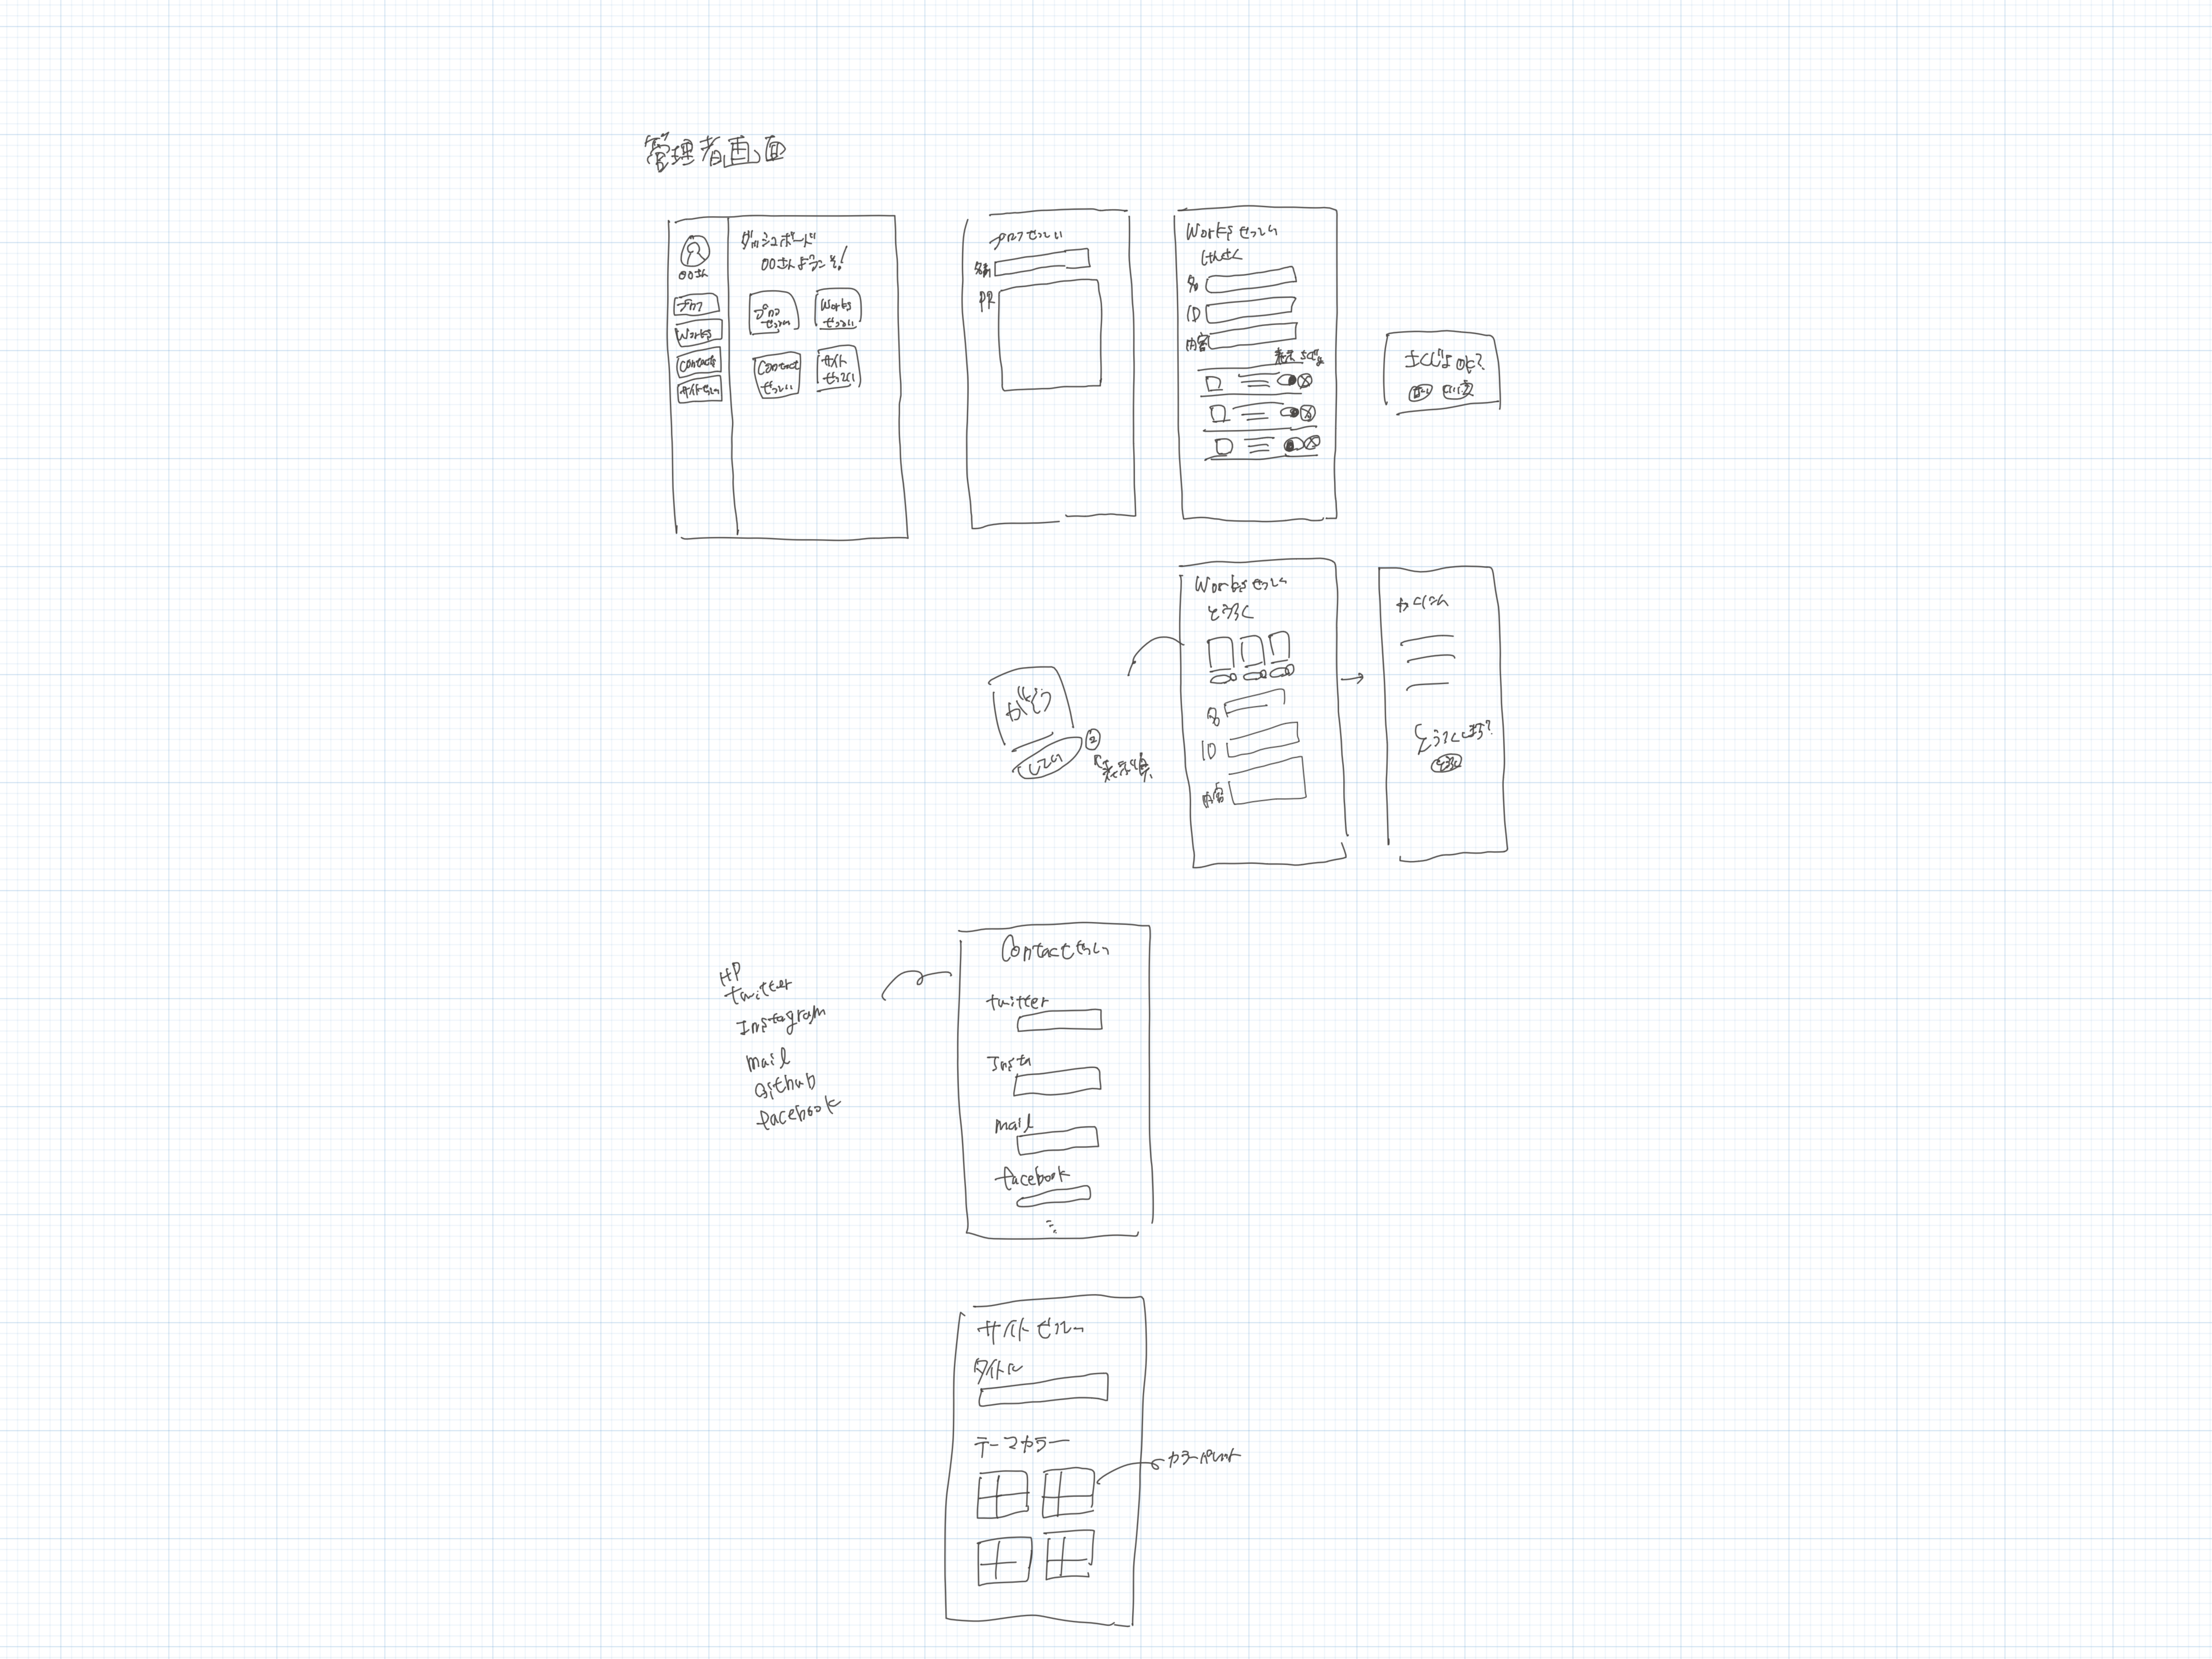 管理者画面
〇〇さん
プロフ
Works
Contacts
サイトせってい
ダッシュボード
〇〇さんようこそ!
プロフ
せってい
Works
せってい
Contact
せってい
サイト
せってい
プロフせってい
名前
PR
Worksせってい
けんさく
名
ID
内容
表示
さくじょOK?
はい
いいえ
Worksせってい
とうろく
名
ID
内容
がぞう
②
表示順
かくにん
とうろくします?
とうろく
HP
twitter
Instagram
mail
Github
facebook
Contactせってい
twitter
Insta
mail
facebook
サイトせってい
タイトル
テーマカラー
カラーパレット